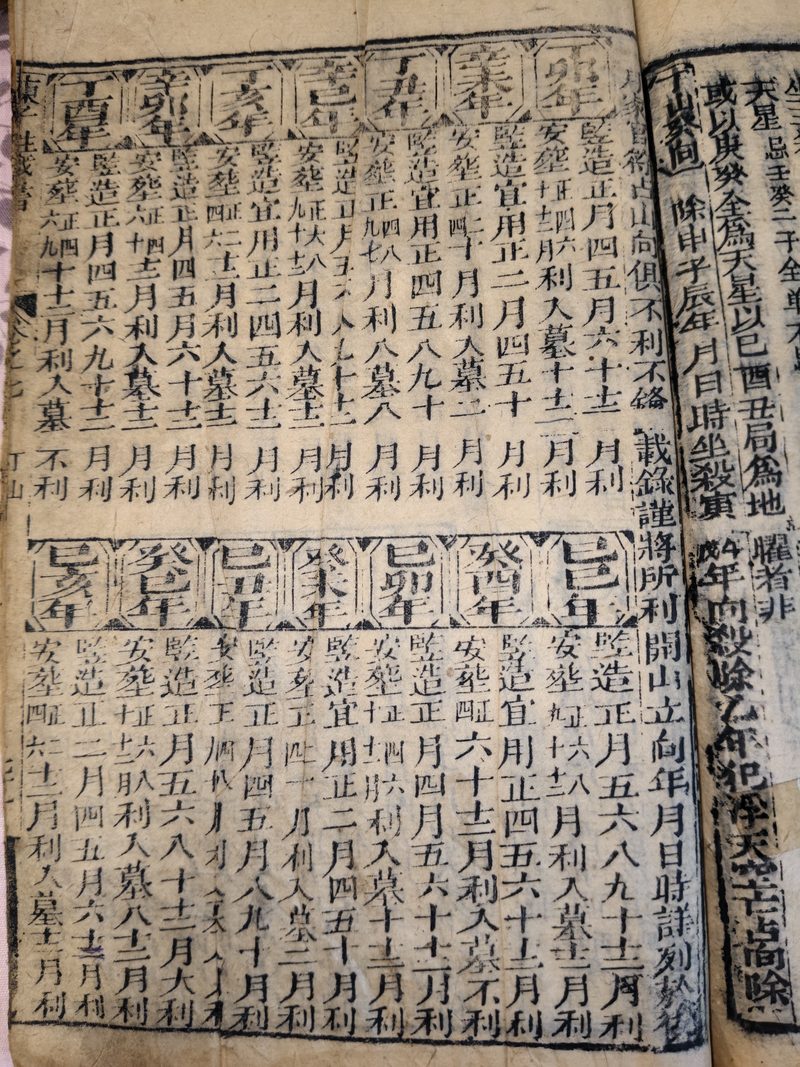 天星忌壬癸二干全
或以庚癸全為天星以巳酉丑局為地曜者非
丁山癸向 除申子辰年月日時坐殺寅午戌年向殺除乙年犯浮天空亡占向除
占山向俱不利不錄 載錄謹將所利開山立向年月日時詳列於後
丁卯年
竪造正月四五月六十十二月利
安葬正四六十十二月利入墓十十二月利
辛未年
竪造宜用正二月四五十月利
安葬正四二十月利入墓二月利
丁丑年
竪造宜用正四五八九十月利
安葬正四八九七月利入墓八月利
辛巳年
竪造正月五六八九十十二月利
安葬正六八九十十二月利入墓十二月利
丁亥年
竪造宜用正二四五六十二月利
安葬正二四六十二月利入墓十二月利
辛卯年
竪造正月四五月六十十二月利
安葬正四六十十二月利入墓十二月利
丁酉年
竪造正月四五六九十十二月利
安葬正四六九十十二月利入墓不利
己巳年
竪造正月五六八九十十二月利
安葬正六八九十十二月利入墓十二月利
癸酉年
竪造宜用正四五六十十二月利
安葬正四六十十二月利入墓不利
己卯年
竪造正月四月五六十十二月利
安葬正四六十十二月利入墓十十二月利
癸未年
竪造宜用正二月四五十月利
安葬正四十一月利入墓二月利
己丑年
竪造正月四五月八九十月利
安葬正四八月利入墓八月利
癸巳年
竪造正月五六八十十二月大利
安葬正六八十十二月利入墓八十二月利
己亥年
竪造正二月四五月六十二月利
安葬正二四六十二月利入墓十二月利